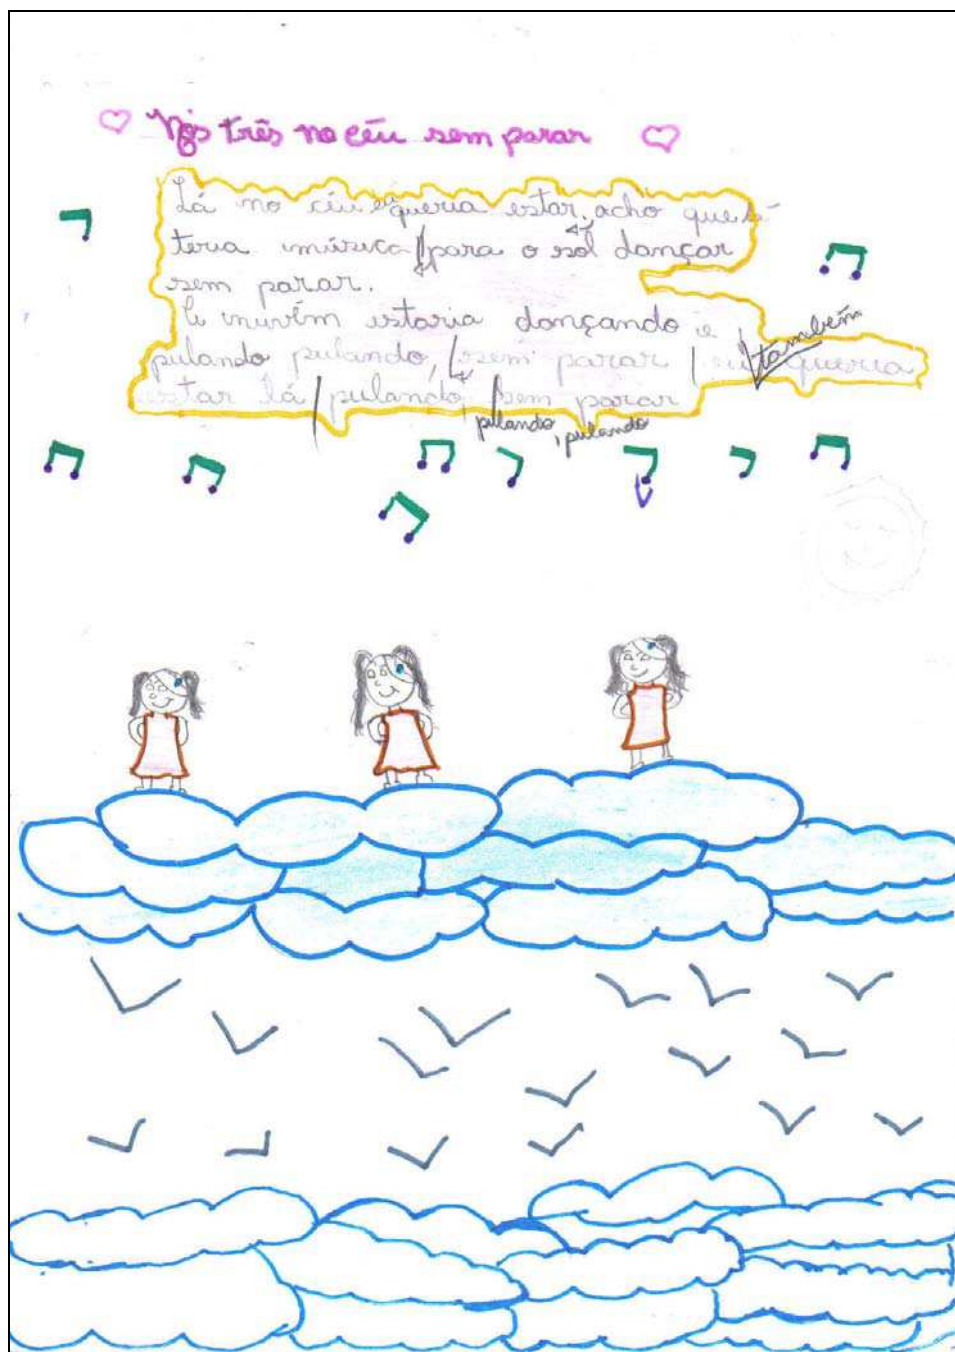 Nós três no céu sem parar
Lá no céu eu queria estar, acho que
teria música para o sol dançar
sem parar.
nuvém estaria dançando e
pulando pulando, sem parar eu também queria
estar lá pulando, sem parar
pulando, pulando